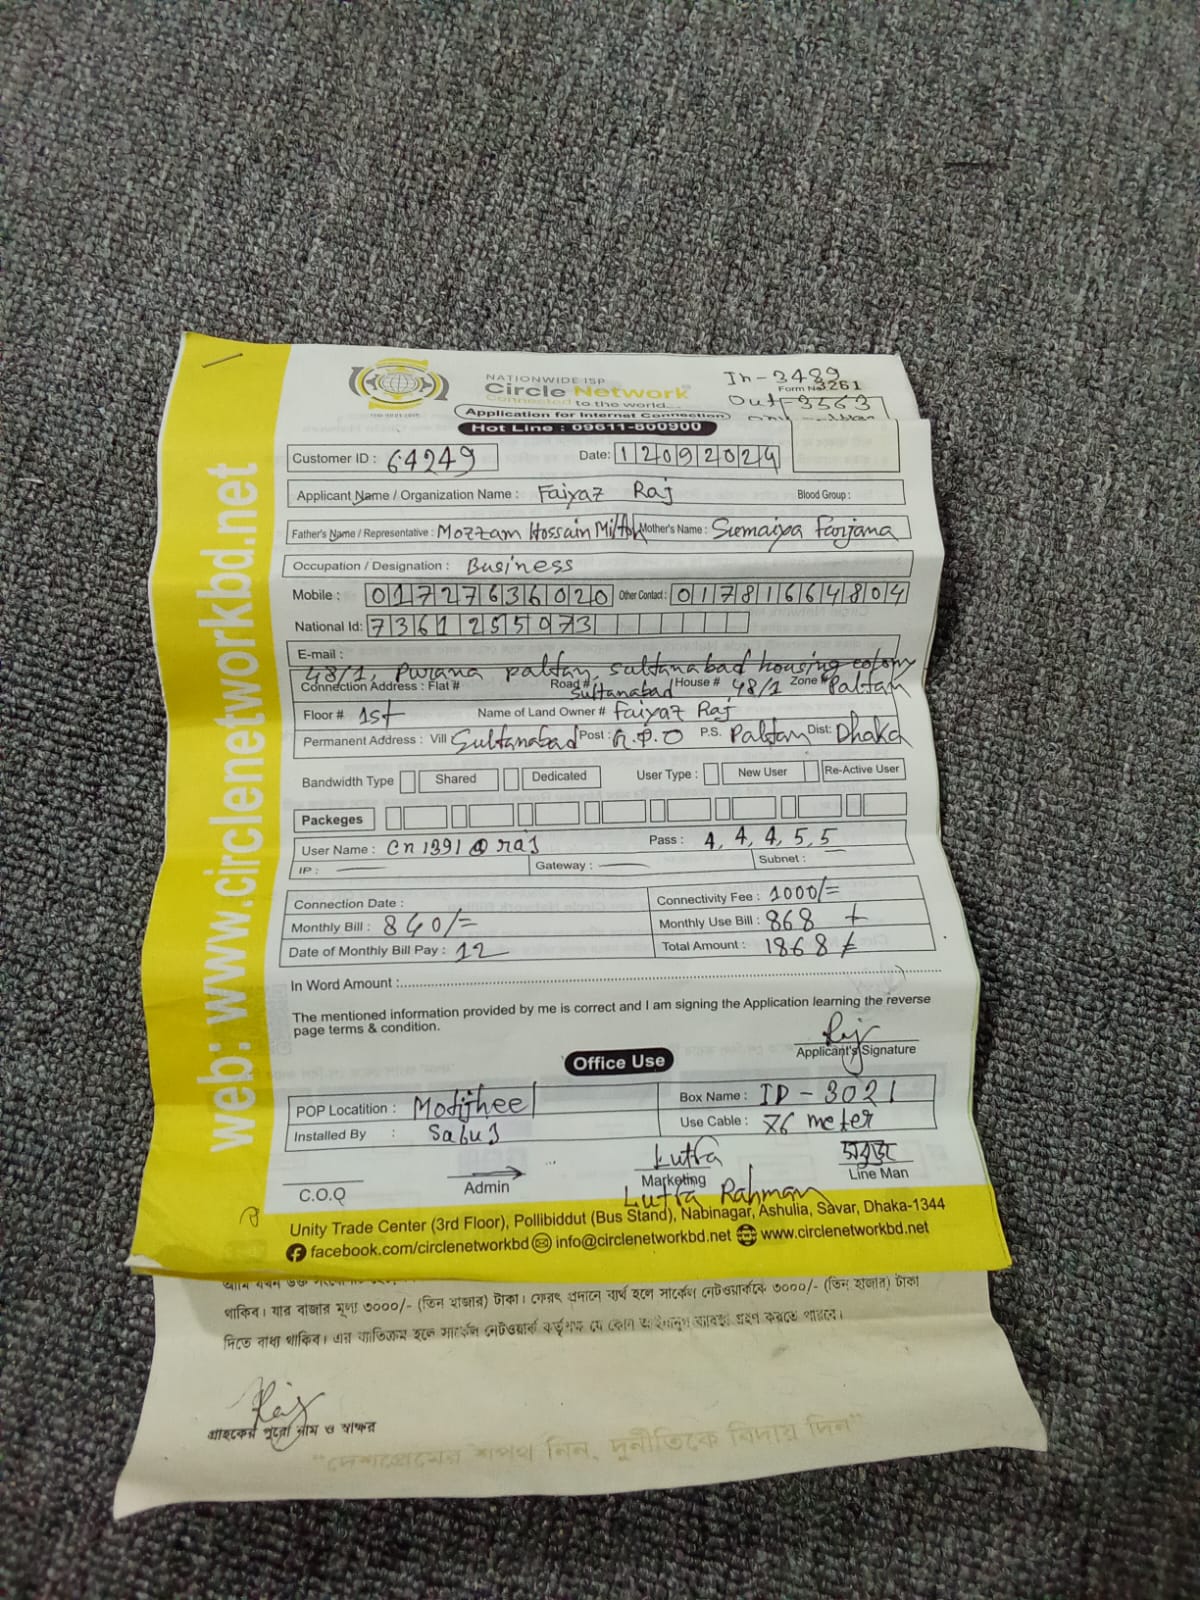 web: www.circlenetworkbd.net
NATIONWIDE ISP
Circle Network
Connected to the world...
ISO 9001:2015
In-3489
Form No 3261
Out-3563
Application for Internet Connection
Hot Line : 09611-800900
Customer ID : 64249 Date: 12092024
Applicant Name / Organization Name : Faiyaz Raj Blood Group :
Father's Name / Representative : Mozzam Hossain Milton Mother's Name : Sumaiya Farjana
Occupation / Designation : Business
Mobile : 01727636020 Other Contact : 01781664804
National Id: 7361255073
E-mail :
48/1, Purana paltan, sultanabad housing colony
Connection Address : Flat # Road # Sultanabad House # 48/1 Zone # Paltan
Floor # 1st Name of Land Owner # Faiyaz Raj
Permanent Address : Vill Sultanabad Post : G.P.O P.S. Paltan Dist: Dhaka
Bandwidth Type Shared Dedicated User Type : New User Re-Active User
Packeges
User Name : Cn1391@raj Pass : 4, 4, 4, 5, 5
IP : Gateway : Subnet :
Connection Date : Connectivity Fee : 1000/=
Monthly Bill : 840/= Monthly Use Bill : 868
Date of Monthly Bill Pay : 12 Total Amount : 1868
In Word Amount :
The mentioned information provided by me is correct and I am signing the Application learning the reverse
page terms & condition.
Raj
Applicant's Signature
Office Use
POP Locatition : Motijheel Box Name : ID - 3021
Installed By : Sabuj Use Cable : 76 meter
Lutfa সবুজ
C.O.Q Admin Marketing Line Man
Lutfa Rahman
Unity Trade Center (3rd Floor), Pollibiddut (Bus Stand), Nabinagar, Ashulia, Savar, Dhaka-1344
facebook.com/circlenetworkbd info@circlenetworkbd.net www.circlenetworkbd.net
থাকিব। যার বাজার মূল্য ৩০০০/- (তিন হাজার) টাকা। ফেরৎ প্রদানে ব্যর্থ হলে সার্কেল নেটওয়ার্ককে ৩০০০/- (তিন হাজার) টাকা
দিতে বাধ্য থাকিব। এর ব্যতিক্রম হলে সার্কেল নেটওয়ার্ক কর্তৃপক্ষ যে কোন আইনানুগ ব্যবস্থা গ্রহণ করতে পারবে।
Raj
গ্রাহকের পুরো নাম ও স্বাক্ষর
"দেশপ্রেমের শপথ নিন, দুর্নীতিকে বিদায় দিন"